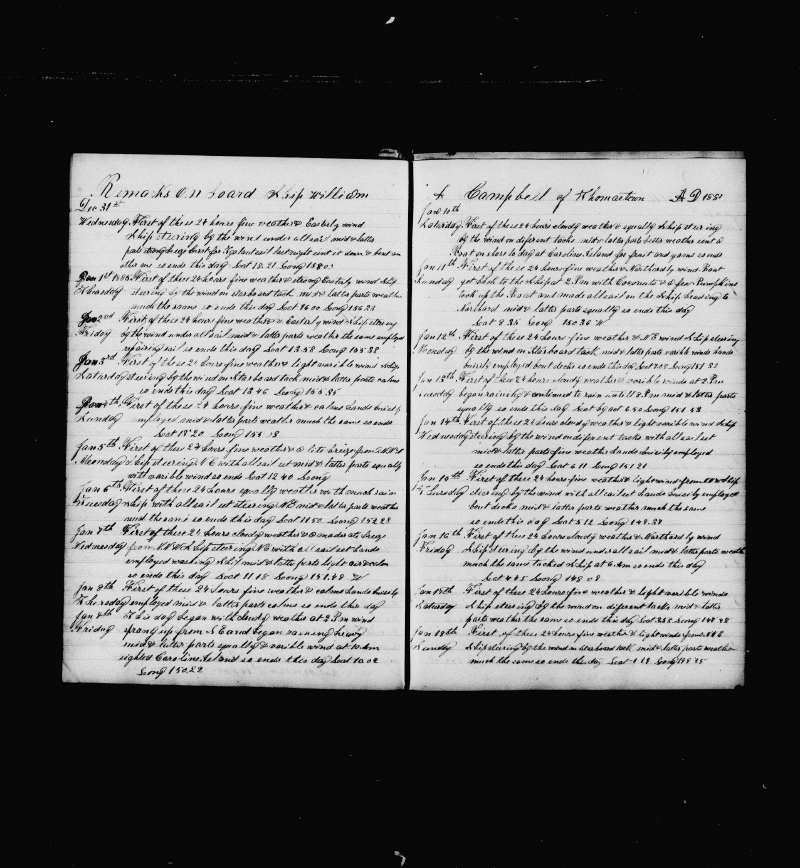 Remarks On board Ship William
Dec 31st
Wednesday First of these 24 hours fine weather & Easterly wind
Ship steering by the wind under all sail mid & latter
part
this day so ends this day Lat 18.21 Long 158.03
Jan 1st 1885 First of these 24 hours fine weather & strong Easterly wind Ship
Thursday steering by the wind on starboard tack mid & latter parts weather
much the same so ends this day Lat 16 00 Long 156 32
Jan 2nd First of these 24 hours fine weather & Easterly wind Ship steering
Friday by the wind under all sail mid & latter parts weather the same employed
repairing sail so ends this day Lat 13.58 Long 155 38
Jan 3rd First of these 24 hours fine weather & light varible wind Ship
Saturday steering by the wind on Starboard tack mid & latter parts calms
so ends this day Lat 13 46 Long 155 35
Jan 4th First of these 24 hours fine weather & calms hands busily
Sunday employed mid & latter parts weather much the same so ends
Lat 13 20 Long 155 18
Jan 5th First of these 24 hours fine weather & a lite breeze from
Monday Ship steering N E with all sail set mid & latter parts squally
with varible wind so ends Lat 12 40 Long
Jan 6th First of these 24 hours squally weather with much rain
Tuesday Ship with all sail set steering NE mid & latter parts weather
much the same so ends this day Lat 11 50 Long 152 28
Jan 7th First of these 24 hours cloudy weather & a moderate breeze
Wednesday from NW Ship steering NE with all sail set hands
employed washing Ship mid & latter parts light air & calm
so ends this day Lat 11 18 Long 151.48 W
Jan 8th First of these 24 hours fine weather & calms hands busily
Thursday employed mid & latter parts calms so ends this day
Jan 9th This day began with cloudy weather at 2 Pm wind
Friday sprang up from and began raining heavy
mid & latter parts squally & varible wind at 10 Am
sighted Caroline Island so ends this day Lat 10 02
Long 150.22
A Campbell of Thomastown A D 1885
Jan 10th
Saturday First of these 24 hours cloudy weather & squally Ship steering
by the wind on diferent tacks mid & latter parts better weather sent a
Boat on shore to day at Caroline Island for fruit and yams so ends
Jan 11th First of these 24 hours fine weather & Northerly wind Boat
Sunday got back to the Ship at 2 Pm with Coconuts & a few Pumpkins
took up the Boat and made all sail on the Ship heading to
Northard mid & latter parts squally so ends this day
Lat 9 35 Long 150 36 W
Jan 12th First of these 24 hours fine weather & NE wind Ship steering
Monday by the wind on Starboard tack mid & latter parts varible winds hands
busily employed bout decks so ends this day Lat Long 151 52
Jan 13th First of these 24 hours cloudy weather & varible winds at 2 Pm
Tuesday began raining & continued to rain until 8 Pm mid & latter parts
squally so ends this day Lat by act 6 50 Long 151 53
Jan 14th First of these 24 hours cloudy weather & light varible wind Ship
Wednesday steering by the wind on diferent tacks with all sail set
mid & latter parts fine weather hands busily employed
so ends this day Lat 6 11 Long 151 21
Jan 15th First of these 24 hours fine weather & light wind from Ship
Thursday steering by the wind with all sail set hands busily employed
bout decks mid & latter parts weather much the same
so ends this day Lat 5 12 Long 149.37
Jan 16th First of these 24 hours cloudy weather & Northard by wind
Friday Ship steering by the wind under all sail mid & latter parts weather
much the same tacked Ship at 6 Am so ends this day
Lat 4 45 Long 148 08
Jan 17th First of these 24 hours fine weather & light varible winds
Saturday Ship steering by the wind on diferent tacks mid & latter
parts weather the same so ends this day Lat Long 148 28
Jan 18th First of these 24 hours fine weather & light winds from
Sunday Ship steering by the wind on starboard tack mid & latter parts weather
much the same so ends this day Lat Long 148 25